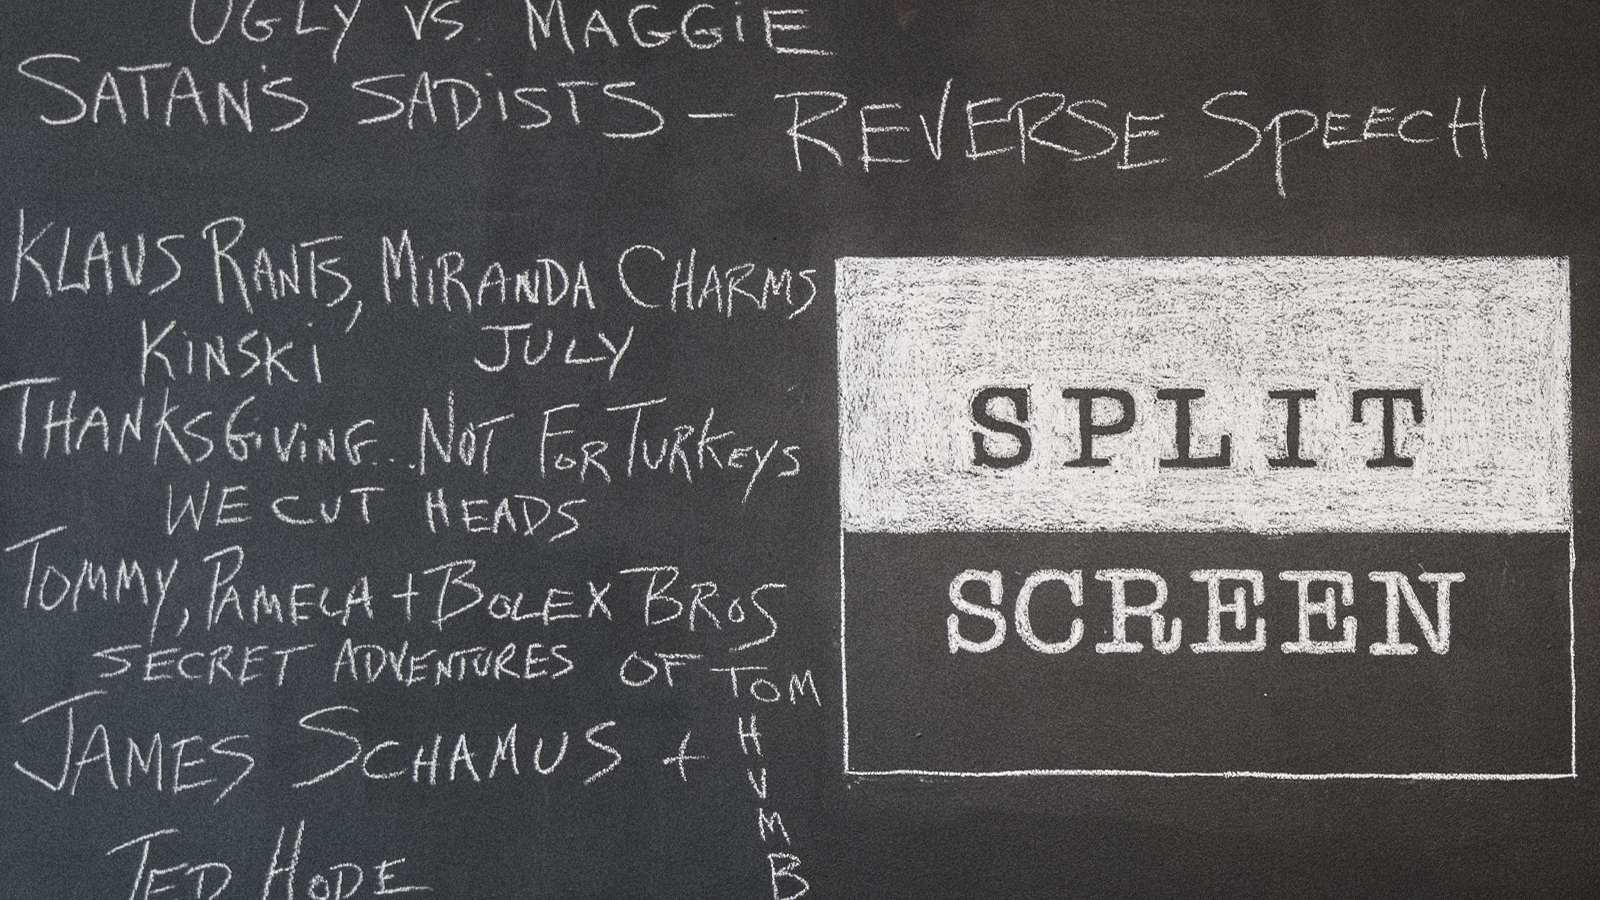 UGLY VS. MAGGIE
SATAN'S SADISTS — REVERSE SPEECH
KLAUS RANTS, MIRANDA CHARMS
KINSKI JULY
THANKSGIVING...NOT FOR TURKEYS
WE CUT HEADS
TOMMY, PAMELA + BOLEX BROS
SECRET ADVENTURES OF TOM THUMB
JAMES SCHAMUS +
TED HOPE
SPLIT
SCREEN